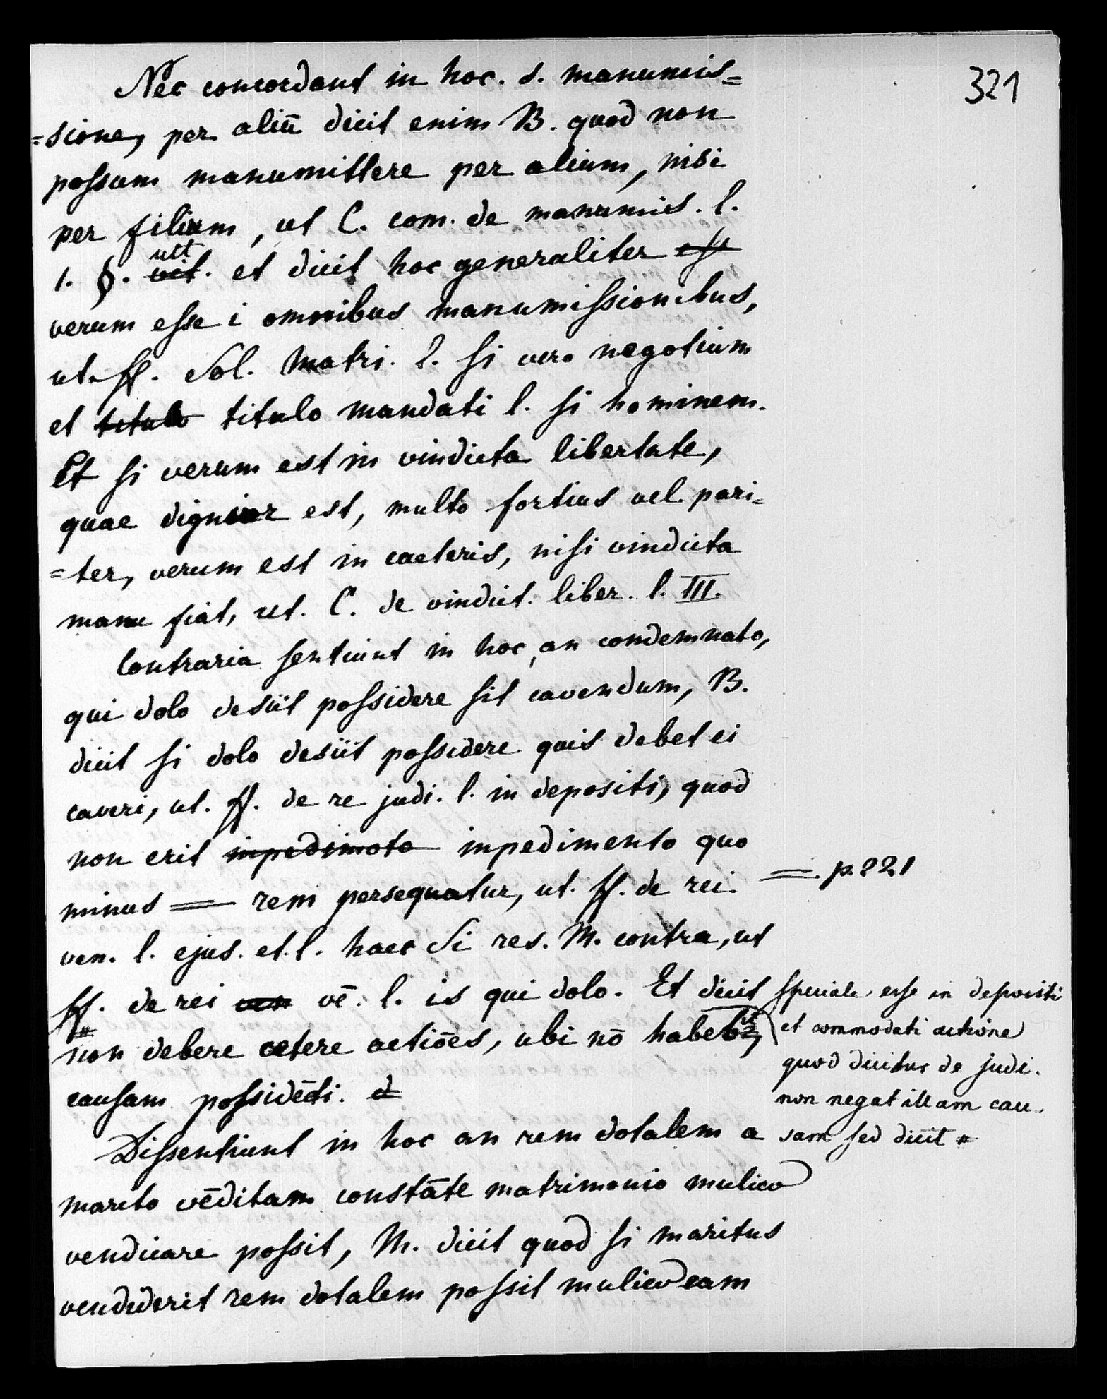 321
Nec concordant in hoc. s. manumis=
=sione, per aliū dicit enim B. quod non
possum manumittere per alium, nisi
per filium, ut C. com. de manumis. l.
1. §. ult. et dicit hoc generaliter esse
verum esse i omnibus manumissionibus,
ut. ff. Sol. Matri. l. si vero negotium
et titulo titulo mandati l. si hominem.
Et si verum est in vindicta libertate,
quae dignior est, multo fortius vel pari=
=ter, verum est in caeteris, nisi vindicta
manu fiat, ut. C. de vindict. liber. l. III.
Contraria sentiunt in hoc, an condemnato,
qui dolo desiit possidere sit cavendum, B.
dicit si dolo desiit possidere quis debet ei
caveri, ut. ff. de re judi. l. in depositi, quod
non erit inpedimoto inpedimento quo
minus = rem persequatur, ut. ff. de rei
= p. 221
ven. l. ejus. et. l. haec si res. M. contra, ut
ff. de rei ven vē. l. is qui dolo. Et dicit
speciale esse in depositi
et commodati actione
quod dicitur de judi.
non negat illam cau.
sam sed dicit #
# non debere cetere actiōes, ubi nō habebit,
causam possidēti. et
Dissentiunt in hoc an rem dotalem a
marito vēditam constāte matrimonio mulier
vendicare possit, M. dicit quod si maritus
vendiderit rem dotalem possit mulier eam